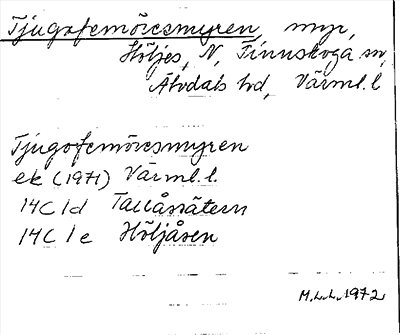 Tjugofemöresmyren, myr,
Höljes, N. Finnskoga sn,
Älvdals hd, Värml. l
Tjugofemöresmyren
ek (1971) Värml. l.
14C 1d Tallåssätern
14C 1e Höljåsen
M.L.L. 1972